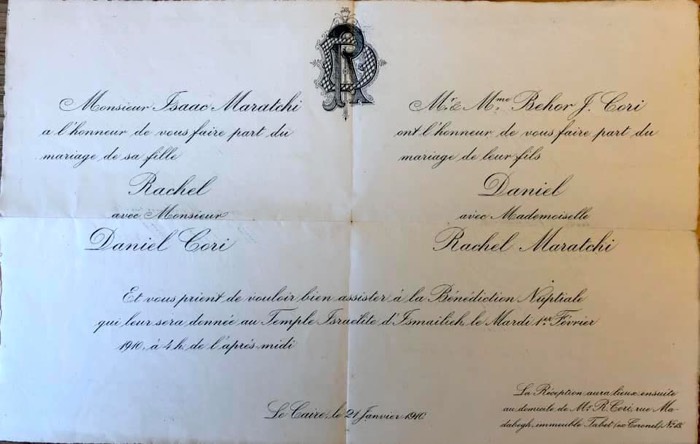 Monsieur Isaac Maratchi
a l'honneur de vous faire part du
mariage de sa fille
Rachel
avec Monsieur
Daniel Cori
Mr. & Mme. Behor J. Cori
ont l'honneur de vous faire part du
mariage de leur fils
Daniel
avec Mademoiselle
Rachel Maratchi
Et vous prient de vouloir bien assister à la Bénédiction Nuptiale
qui leur sera donnée au Temple Israélite d'Ismailieh le Mardi 1er Février
1910, à 4 h. de l'après midi
Le Caire, le 21 Janvier 1910.
La Réception aura lieu ensuite
au domicile de Mr R. Cori, rue Ma-
dabegh, immeuble Tabet